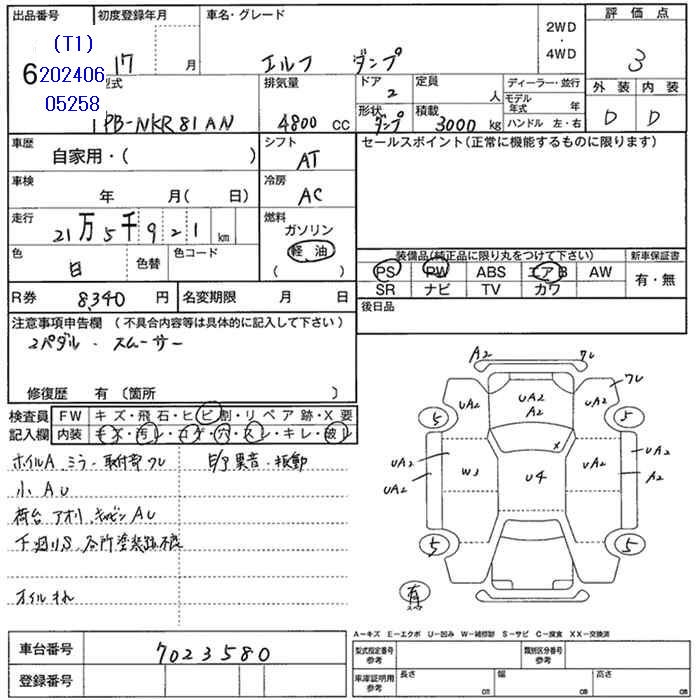 出品番号 初度登録年月 車名・グレード 評価点
(T1)
6 202406
05258
17 月 エルフ ダンプ 2WD・4WD 3
型式 排気量 ドア 2 定員 人 ディーラー・並行 外装 内装
モデル年式 年
PB-NKR81AN 4800 CC 形状 ダンプ 積載 3000 kg ハンドル 左・右 D D
車歴 自家用・( ) シフト AT セールスポイント(正常に機能するものに限ります)
車検 年 月( 日) 冷房 AC
走行 21万5千921 km 燃料 ガソリン
軽油
( )
色 白 色替 色コード
装備品(純正品に限り丸をつけて下さい) 新車保証書
PS PW ABS エアB AW 有・無
SR ナビ TV カワ
R券 8,340 円 名変期限 月 日 後日品
注意事項申告欄(不具合内容等は具体的に記入して下さい)
2ペダル・スムーサー
修復歴 有〔箇所 〕
検査員 FW キズ・飛石・ヒビ割・リペア跡・X要
記入欄 内装 キズ・汚レ・コゲ・穴・スレ・キレ・破レ
ホイルA、ミラー取付部フレ
小AU
荷台アオリ、キャビンAU
下廻りS、各所塗装跡不良
オイルもれ
A2 フレ
UA2 UA2 A2 UA2 フレ
5 5
UA2 UA2 W3 U4 X UA2 UA2 A2
5 5
有
A-キズ E-エクボ U-凹み W-補修跡 S-サビ C-腐食 XX-交換済
車台番号 7023580
型式指定番号 参考 類別区分番号 参考
登録番号
車庫証明用 参考 長さ cm 幅 cm 高さ cm